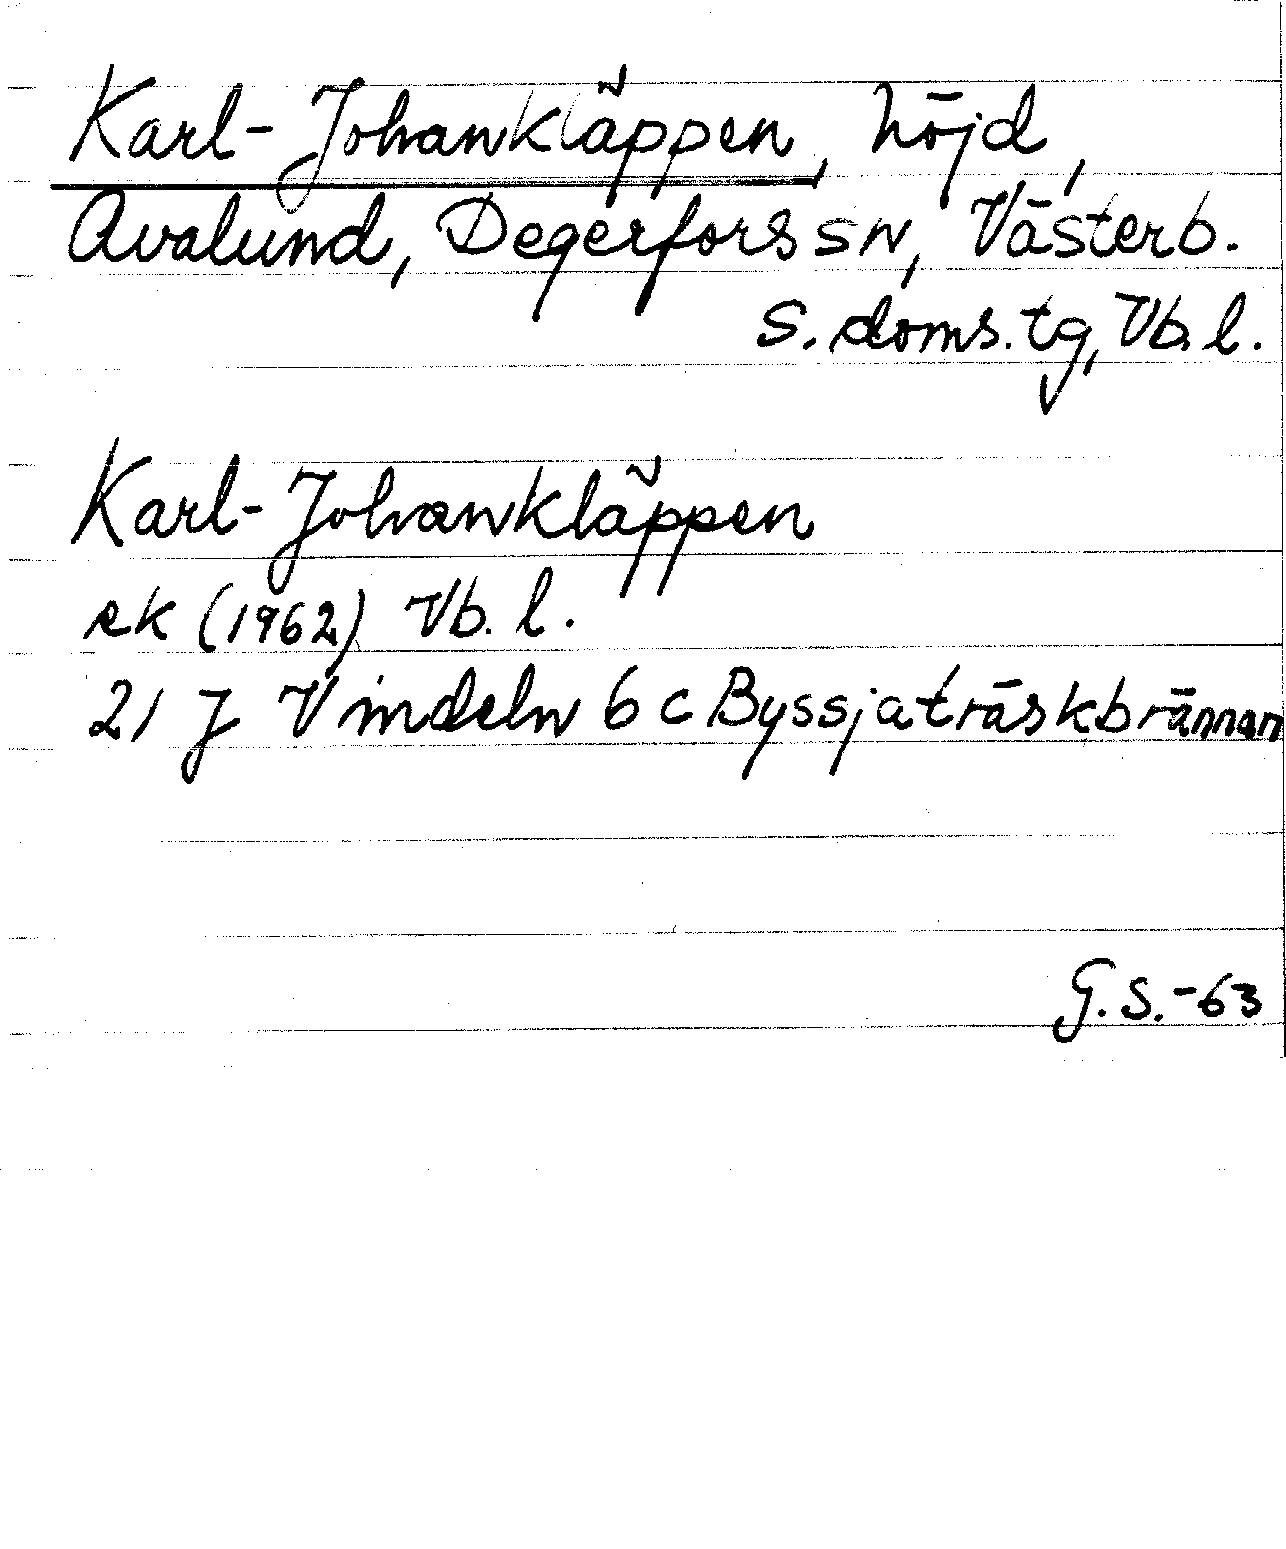 Karl-Johankläppen, höjd,
Avalund, Degerfors sn, Västerb.
s. doms. tg, Vb. l.
Karl-Johankläppen
ek (1962) Vb. l.
21 J Vindeln 6 c Byssjaträskbrännan
G. S. -63